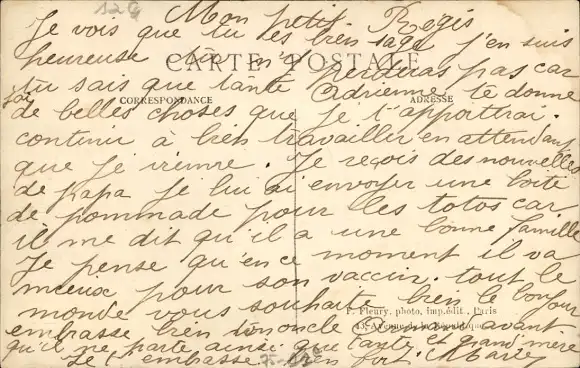 12G
Mon petit Regis
Je vois que tu es bien sage j'en suis
heureuse tu n'y perdras pas car
CARTE POSTALE
tu sais que tante Adrienne te donne
CORRESPONDANCE
ADRESSE
de belles choses que je t'apportrai.
continu à bien travailler en attendant
que je vienne. Je reçois des nouvelles
de papa je lui ai envoyer une boite
de pommade pour les totos car
il me dit qu'il a une bonne famille
Je pense qu'en ce moment il va
mieux pour son vaccin. tout le
monde vous souhaite bien le bonjour
F. Fleury, photo, imp. édit., Paris
43, Avenue de la République
embrasse bien tononcle avant
qu'il ne parte ainsi que tante et grand mère
Je t'embrasse bien fort. Marie